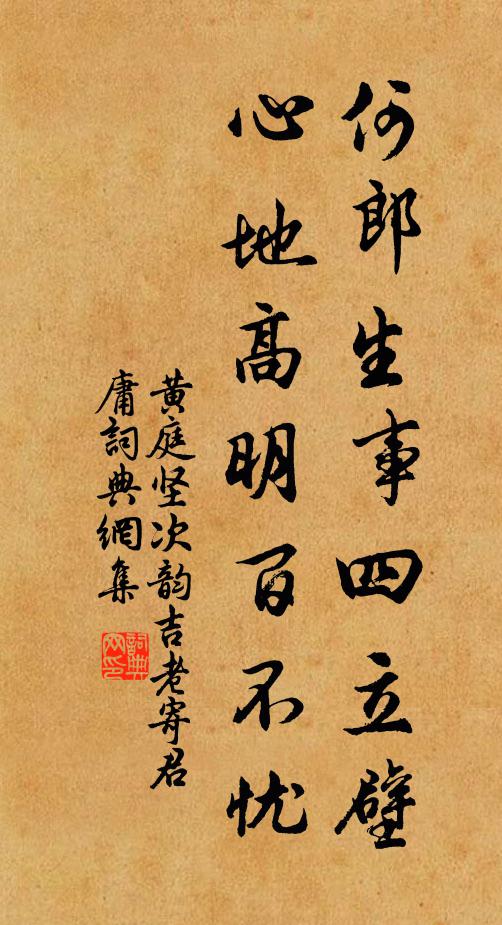 何郎生事四立壁
心地高明百不忧
黄庭坚次韵吉老寄君
庸詞典網集
詞典网印